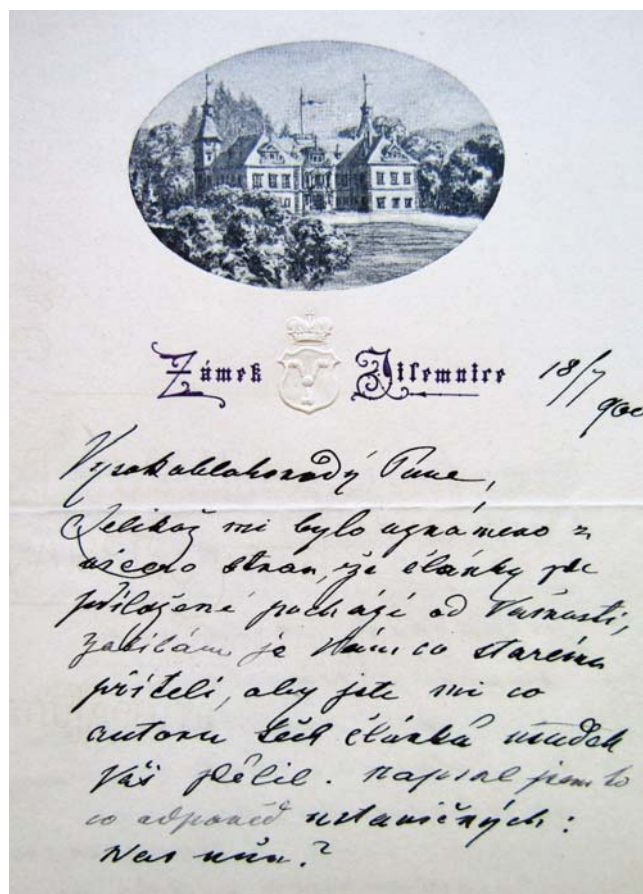 Zámek Jilemnice 18/7 900
Vysokoblahorodý Pane,
Jelikož mi bylo oznámeno z
vícero stran, že články zde
přiložené pochází od Vašnosti,
zasílám je Vám co starému
příteli, aby jste mi co
autoru těch článků úsudek
Váš sdělil. Napsal jsem to
co odpověď ustavičných:
Was nun?